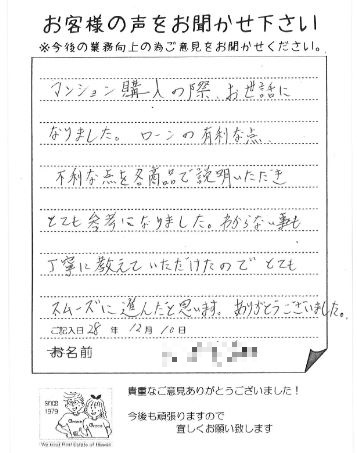 お客様の声をお聞かせ下さい
※今後の業務向上の為ご意見をお聞かせください。
マンション購入の際、お世話に
なりました。ローンの有利な点、
不利な点を各商品で説明いただき
とても参考になりました。わからない事も
丁寧に教えていただけたのでとても
スムーズに進んだと思います。ありがとうございました。
ご記入日28年12月10日
お名前
SINCE
1979
貴重なご意見ありがとうございました！
今後も頑張りますので
宜しくお願い致します